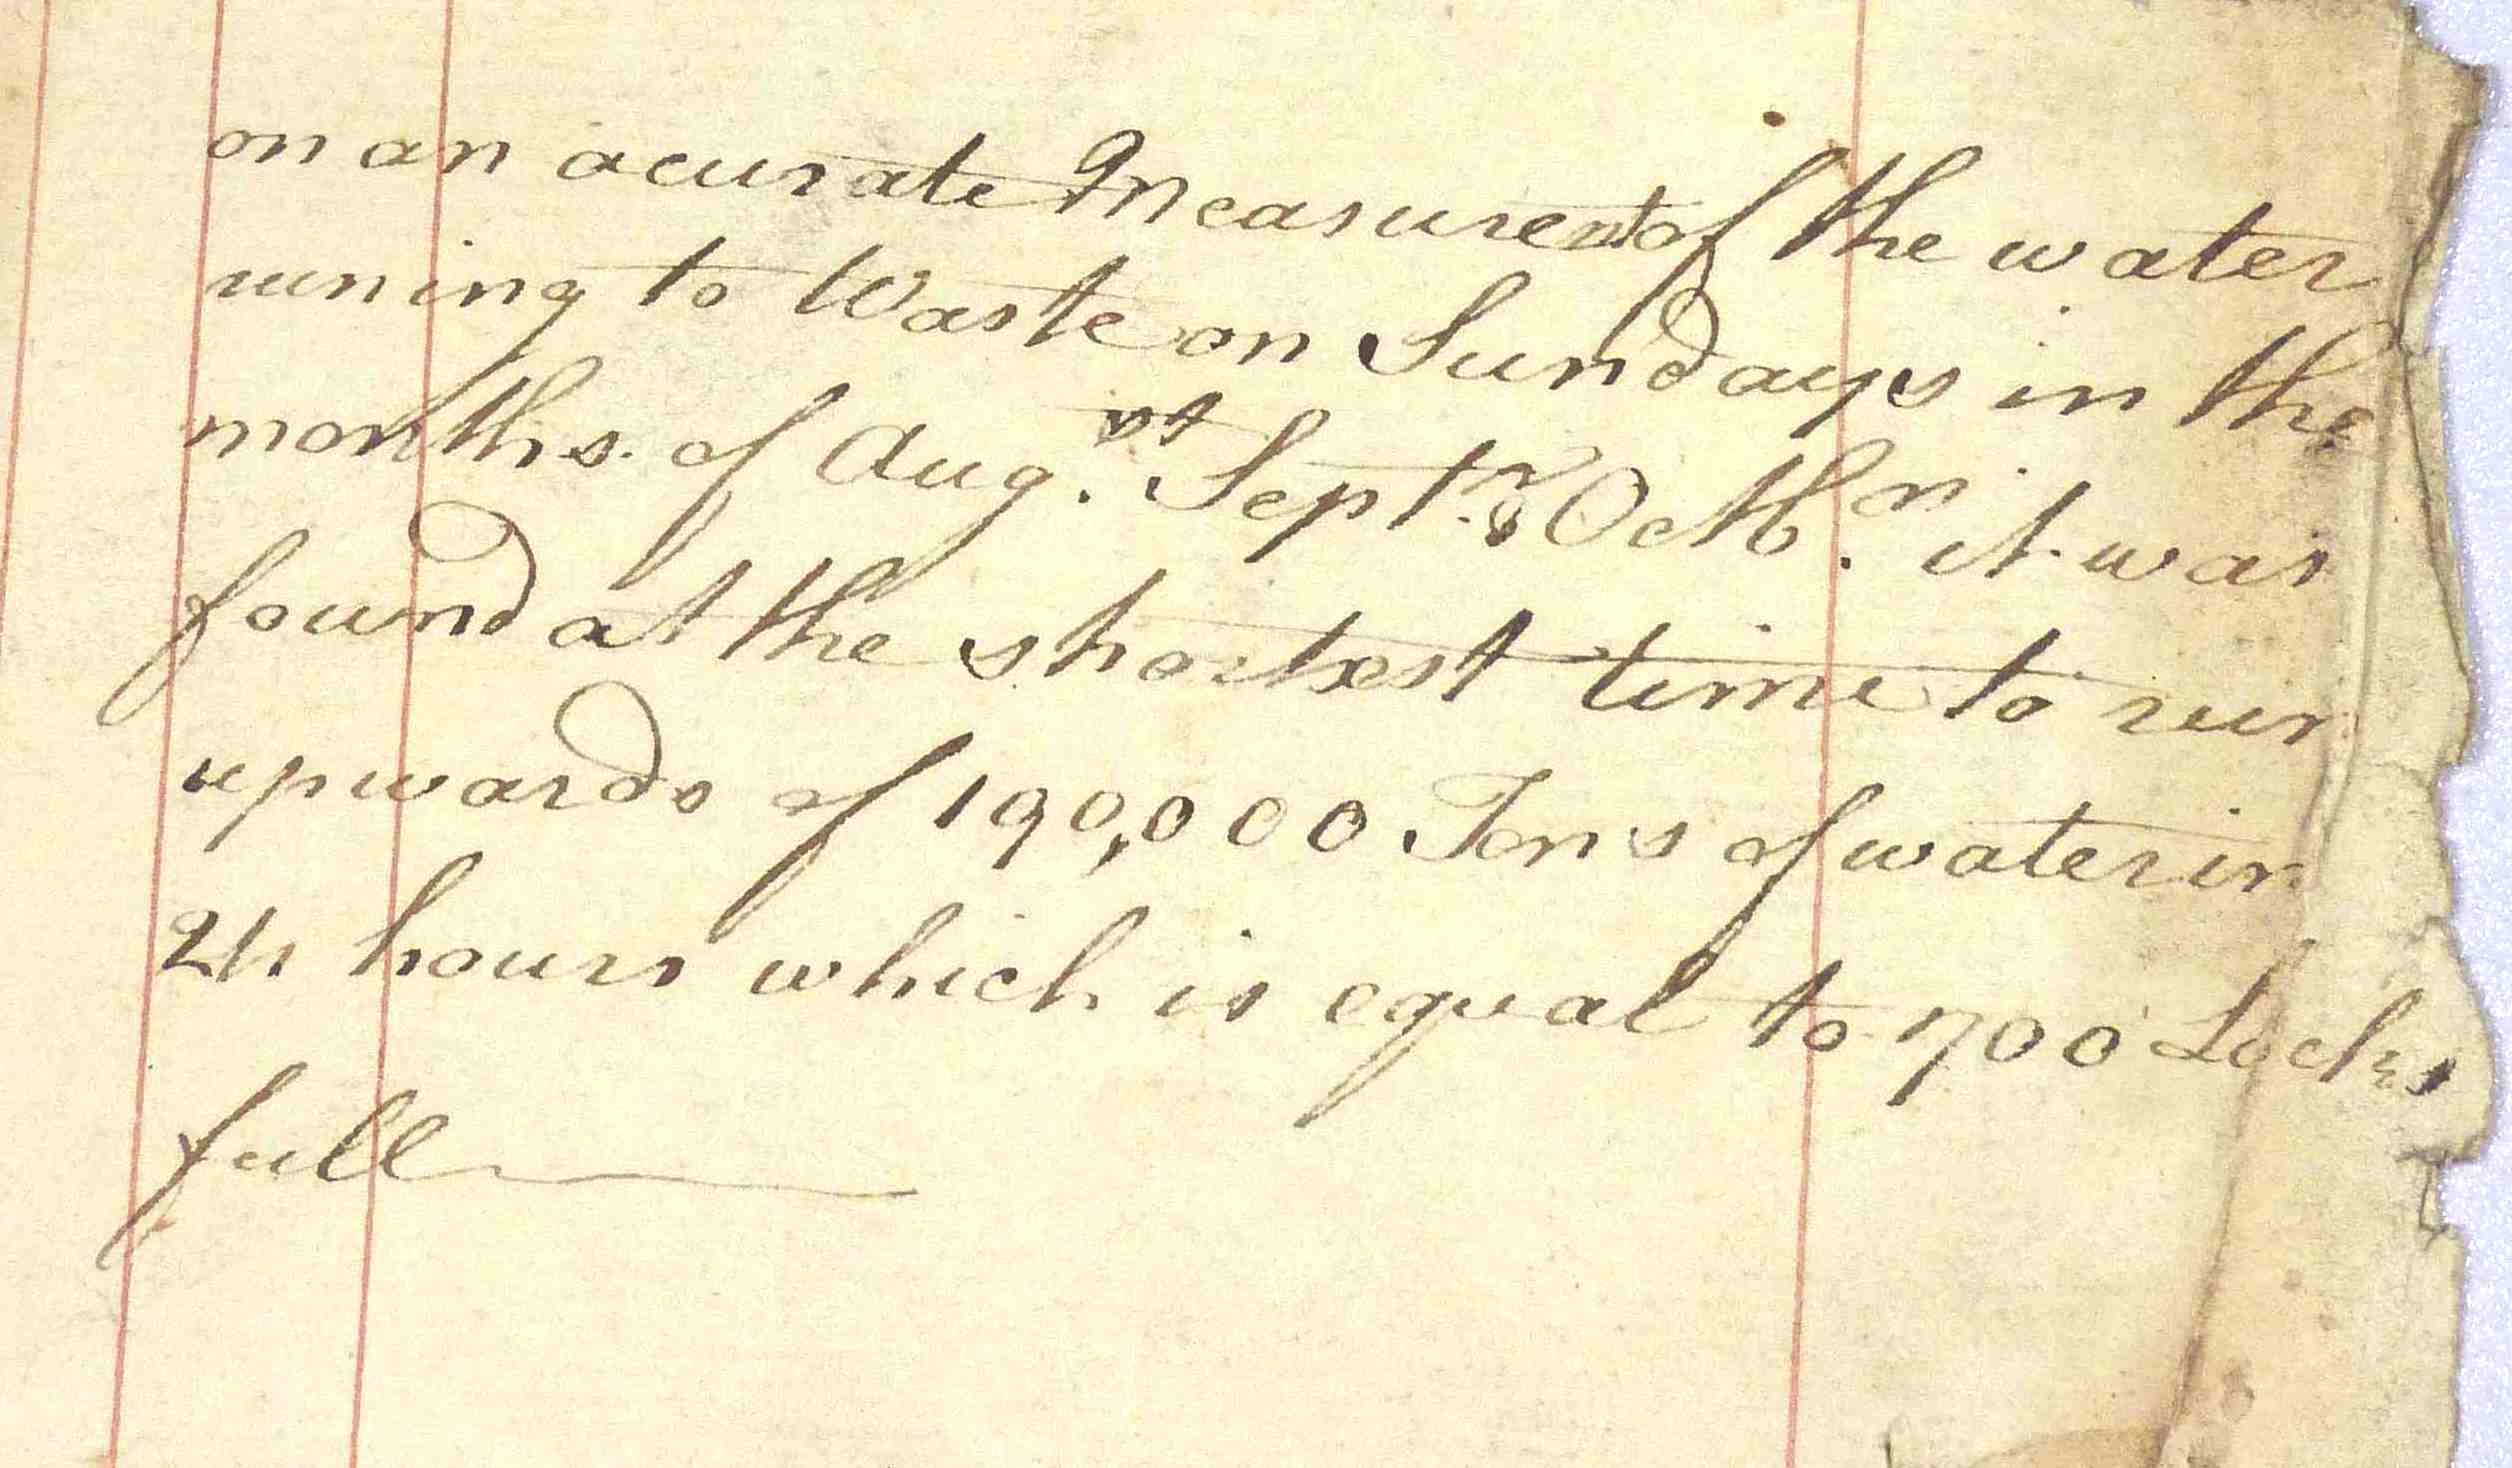 on an acurate Measurent of the water
runing to Waste on Sundays in the
months of Aug.st Sept.r & Octb.er it was
found at the shortest time to run
upwards of 190,000 Tons of water in
24 hours which is equal to 700 Locks
full